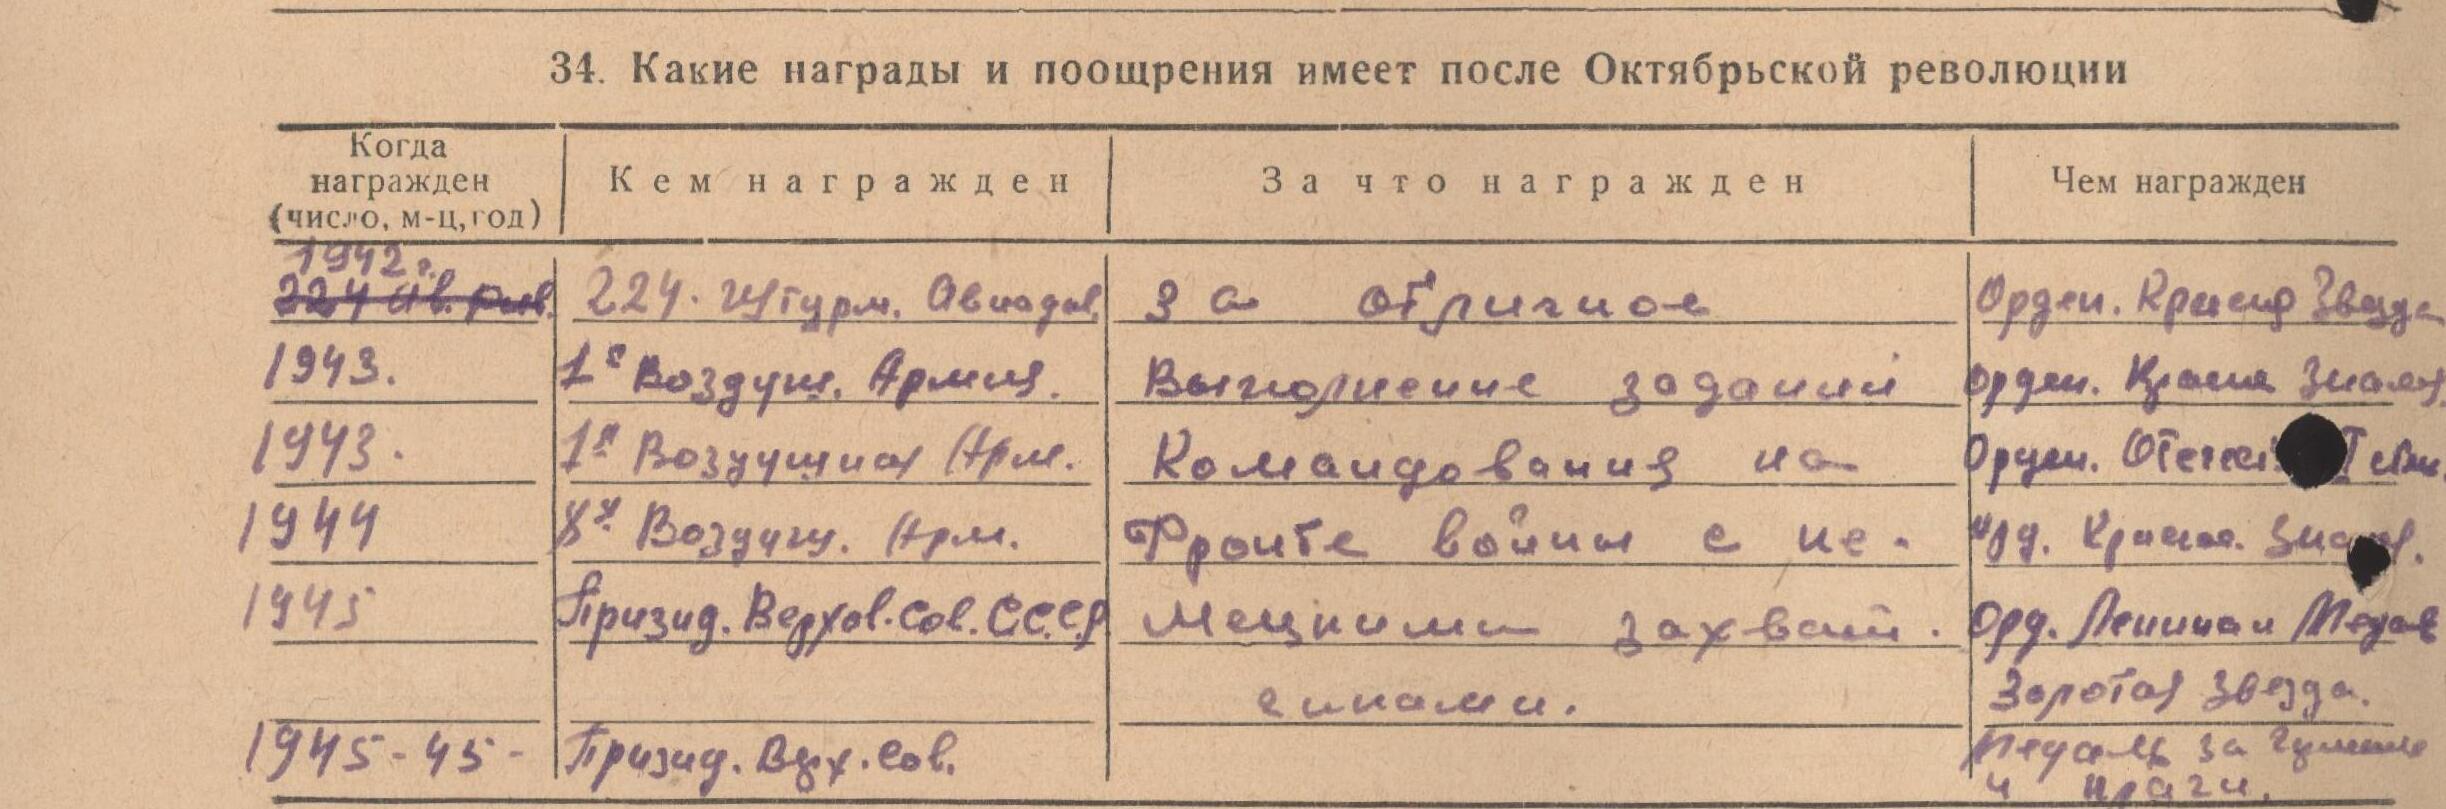 34. Какие награды и поощрения имеет после Октябрьской революции
Когда награжден (число, м-ц, год) Кем награжден За что награжден Чем награжден
1942 г.
224 224. Штурм. Авиадив. За отличное Орден. Красная Звезда
1943. 1я Воздуш. Армия. Выполнение заданий Орден. Красн Знамя
1943. 1я Воздушная Арм. Командования на Орден. Отечес I степ.
1944 8я Воздуш. Арм. Фронте войны с не- Орд. Красное. Знам.
1945 Призид. Верхов. Сов. СССР мецкими захват- Орд. Ленина и Медаль
чиками. Золотая Звезда.
1945-45- Призид. Верх. Сов. Медаль за
и Праги.